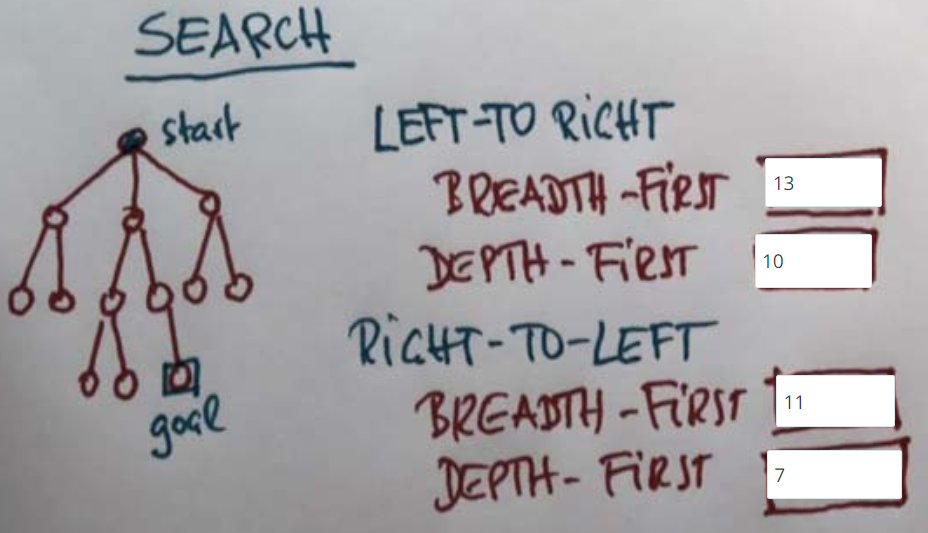 SEARCH
start
LEFT-TO RiGHT
BREADTH-FiRST 13
DEPTH-FiRST 10
RiGHT-TO-LEFT
BREADTH-FiRST 11
goal
DEPTH-FiRST 7